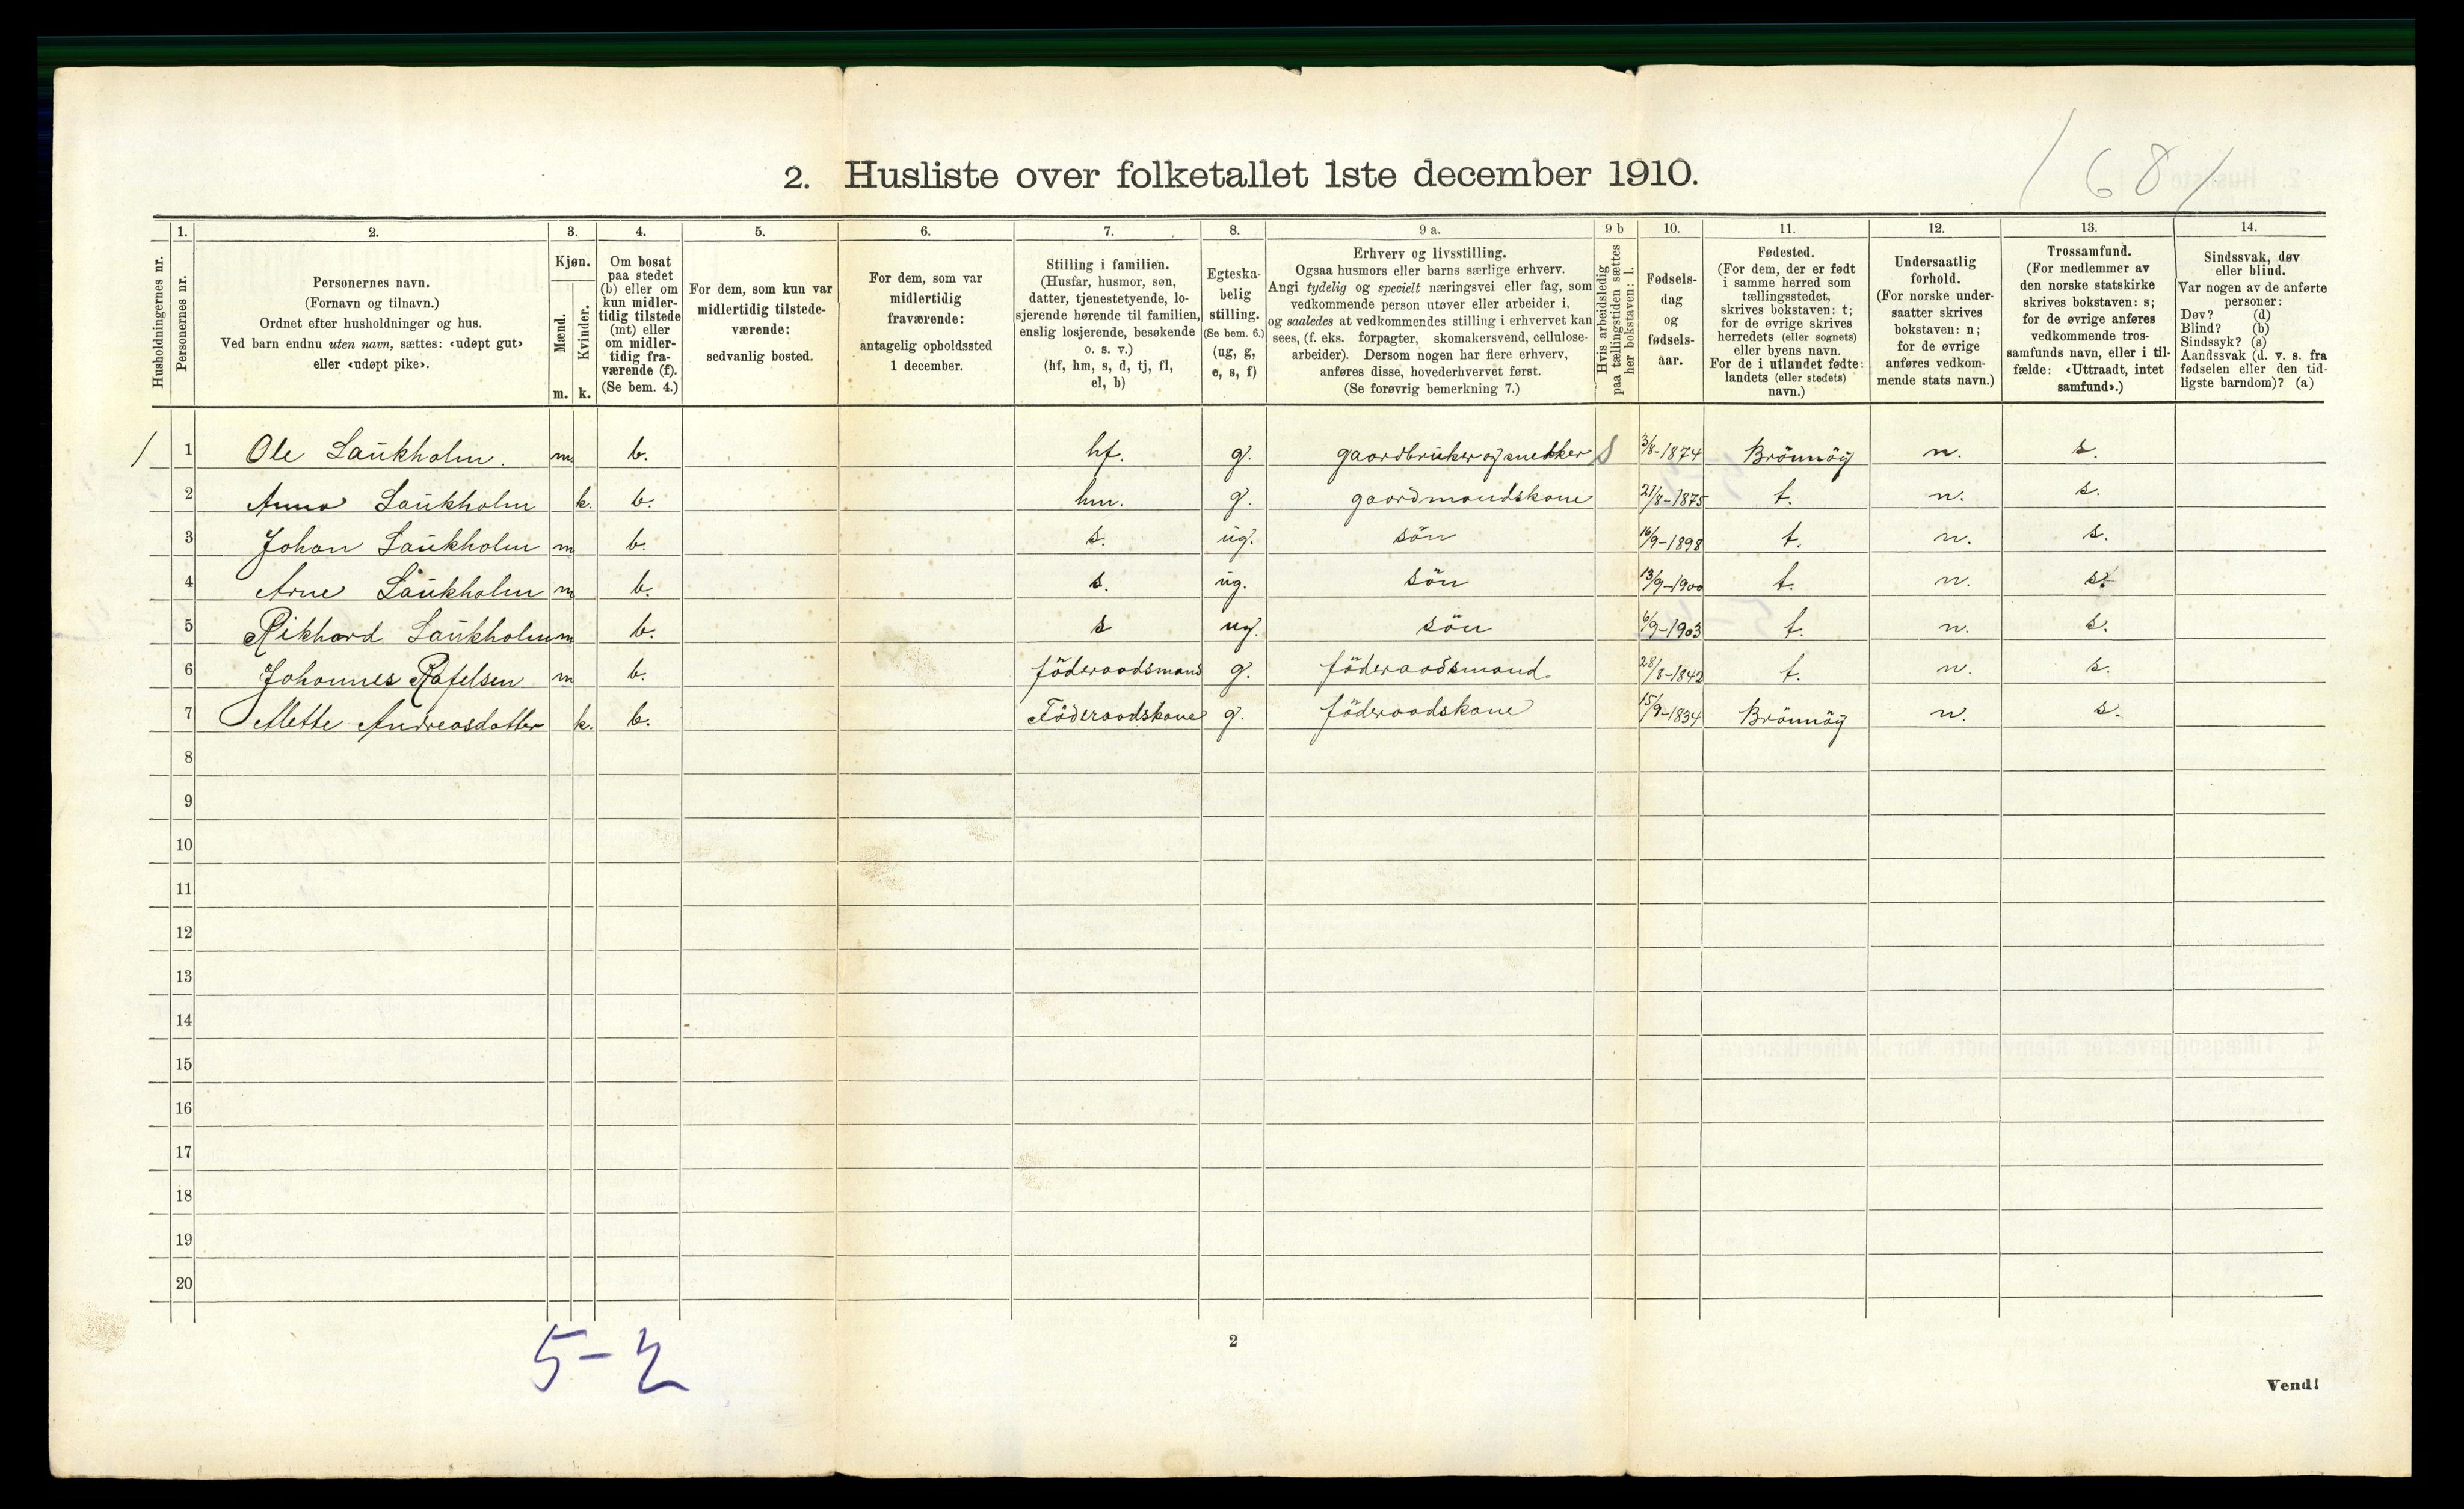 / 68 /
2. Husliste over folketallet 1ste december 1910.
Husholdningernes nr.
1.
Personernes nr.
2.
Personernes navn.
(Fornavn og tilnavn.)
Ordnet efter husholdninger og hus.
Ved barn endnu uten navn, sættes: «udøpt gut»
eller «udøpt pike».
3.
Kjøn.
Mænd.
Kvinder.
m. k.
4.
Om bosat
paa stedet
(b) eller om
kun midler-
tidig tilstede
(mt) eller
om midler-
tidig fra-
værende (f).
(Se bem. 4.)
5.
For dem, som kun var
midlertidig tilstede-
værende:
sedvanlig bosted.
6.
For dem, som var
midlertidig
fraværende:
antagelig opholdssted
1 december.
7.
Stilling i familien.
(Husfar, husmor, søn,
datter, tjenestetyende, lo-
sjerende hørende til familien,
enslig losjerende, besøkende
o. s. v.)
(hf, hm, s, d, tj, fl,
el, b)
8.
Egteska-
belig
stilling.
(Se bem. 6.)
(ug, g,
e, s, f)
9 a.
Erhverv og livsstilling.
Ogsaa husmors eller barns særlige erhverv.
Angi tydelig og specielt næringsvei eller fag, som
vedkommende person utøver eller arbeider i,
og saaledes at vedkommendes stilling i erhvervet kan
sees, (f. eks. forpagter, skomakersvend, cellulose-
arbeider). Dersom nogen har flere erhverv,
anføres disse, hovederhvervet først.
(Se forøvrig bemerkning 7.)
9 b
Hvis arbeidsledig
paa tællingstiden sættes
her bokstaven: l.
10.
Fødsels-
dag
og
fødsels-
aar.
11.
Fødested.
(For dem, der er født
i samme herred som
tællingsstedet,
skrives bokstaven: t;
for de øvrige skrives
herredets (eller sognets)
eller byens navn.
For de i utlandet fødte:
landets (eller stedets)
navn.)
12.
Undersaatlig
forhold.
(For norske under-
saatter skrives
bokstaven: n;
for de øvrige
anføres vedkom-
mende stats navn.)
13.
Trossamfund.
(For medlemmer av
den norske statskirke
skrives bokstaven: s;
for de øvrige anføres
vedkommende tros-
samfunds navn, eller i til-
fælde: «Uttraadt, intet
samfund».)
14.
Sindssvak, døv
eller blind.
Var nogen av de anførte
personer:
Døv? (d)
Blind? (b)
Sindssyk? (s)
Aandssvak (d. v. s. fra
fødselen eller den tid-
ligste barndom)? (a)
/ 1 Ole Laukholm. m b. hf. g. gaardbruker og snekker S 3/8-1874 Brönnöy n. s.
2 Anna Laukholm k. b. hm. g. gaardmandskone 21/8-1875 t. n. s.
3 Johan Laukholm m b. s. ug. sön 16/9-1898 t. n. s.
4 Arne Laukholm m b. s. ug. sön 13/9-1900 t. n. s.
5 Rikhard Laukholm m b. s ug. sön 6/9-1903 t. n. s.
6 Johannes Rafelsen m b. föderaadsmand g. föderaadsmand. 28/8-1842 t. n. s.
7 Mette Andreasdatter k. b. Föderaadskone g. föderaadskone 15/9-1834 Brönnöy n. s.
8
9
10
11
12
13
14
15
16
17
18
19
20
5-2
2
Vend!